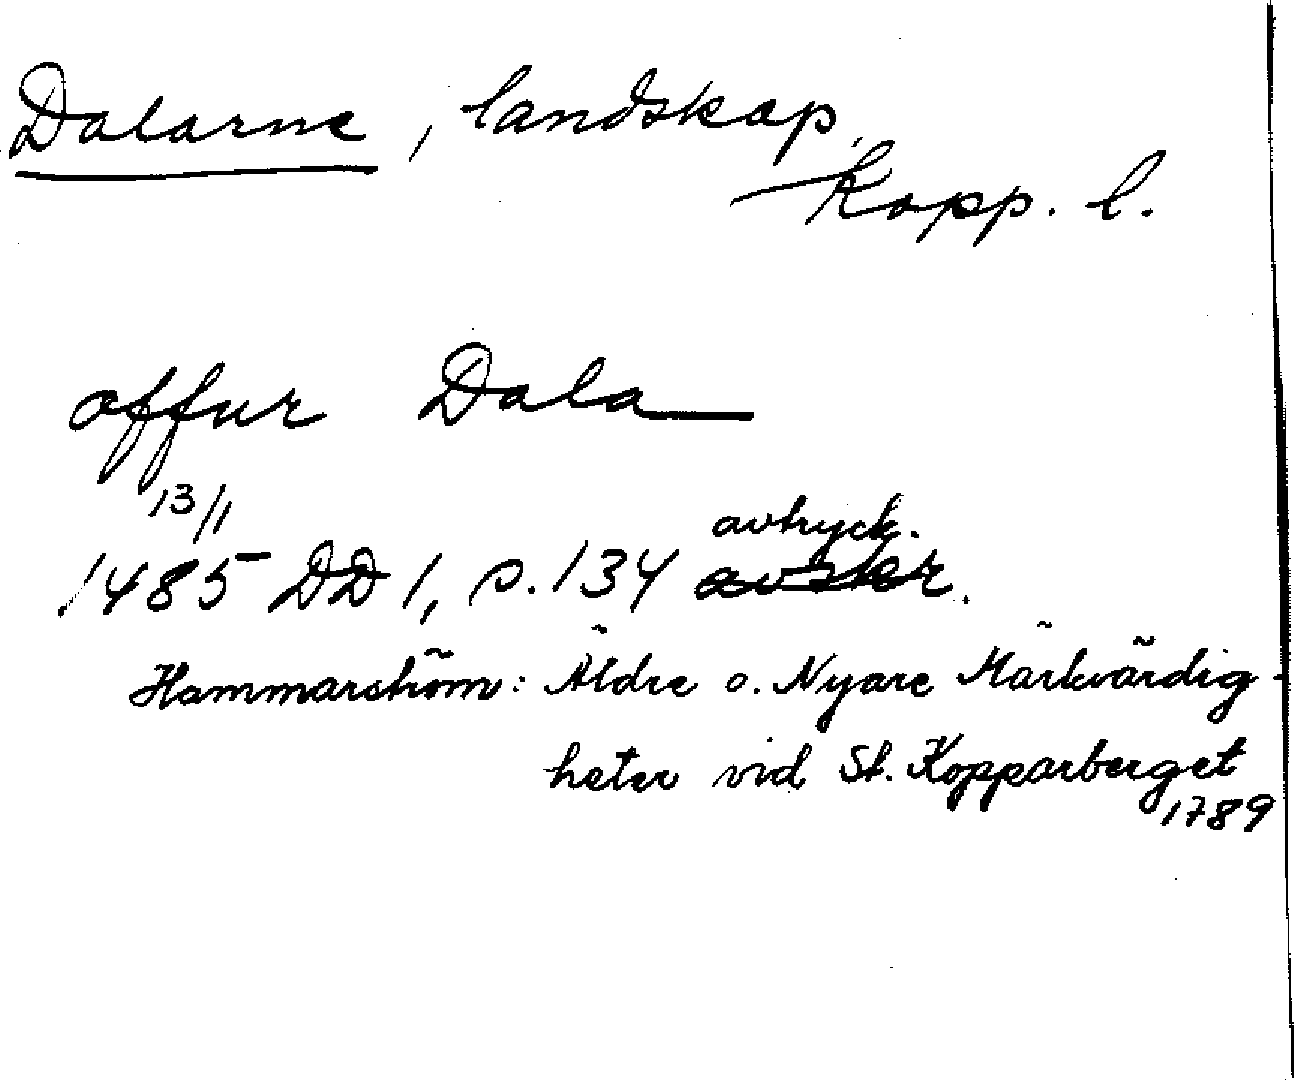 Dalarne, landskap,
Kopp. l.
offur Dala
13/1
1485 DD 1, s. 134 avtryck.
avskr.
Hammarström: Äldre o. Nyare Märkvärdig-
heter vid St. Kopparberget
1789